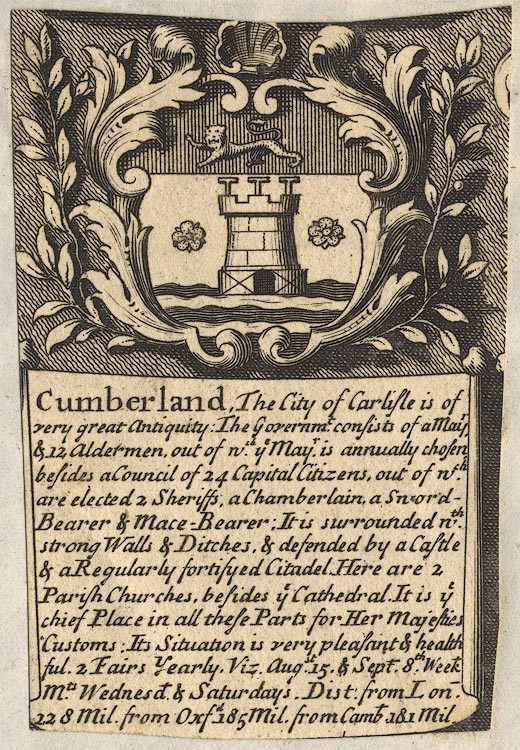 Cumberland, The City of Carlisle is of
very great Antiquity: The Governmt. consists of a Mayr.
& 12 Aldermen, out of wch. ye Mayr. is annually chosen
besides a Council of 24 Capital Citizens, out of wch.
are elected 2 Sheriffs, a Chamberlain, a Sword-
Bearer & Mace-Bearer: It is surrounded wth.
strong Walls & Ditches, & defended by a Castle
& a Regularly fortifyed Citadel. Here are 2
Parish Churches, besides ye Cathedral. It is ye
chief Place in all these Parts for Her Majesties
Customs: Its Situation is very pleasant & health
ful. 2 Fairs Yearly. Viz. Augst. 15. & Sept. 8th. Week
Mts. Wednesd. & Saturdays. Dist. from Lon.
228 Mil. from Oxfd. 185 Mil. from Camb. 181 Mil